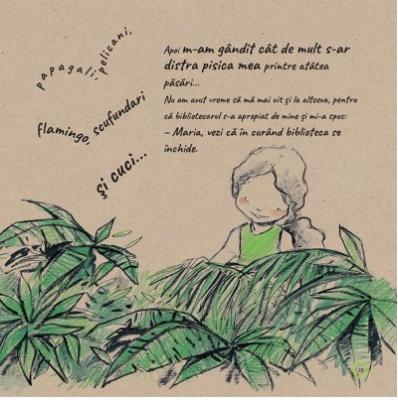 papagali, pelicani,
flamingo, scufundari
și cuci...
Apoi m-am gândit cât de mult s-ar
distra pisica mea printre atâtea
păsări...
Nu am avut vreme să mă mai uit și la altceva, pentru
că bibliotecarul s-a apropiat de mine și mi-a spus:
– Maria, vezi că în curând biblioteca se
închide.